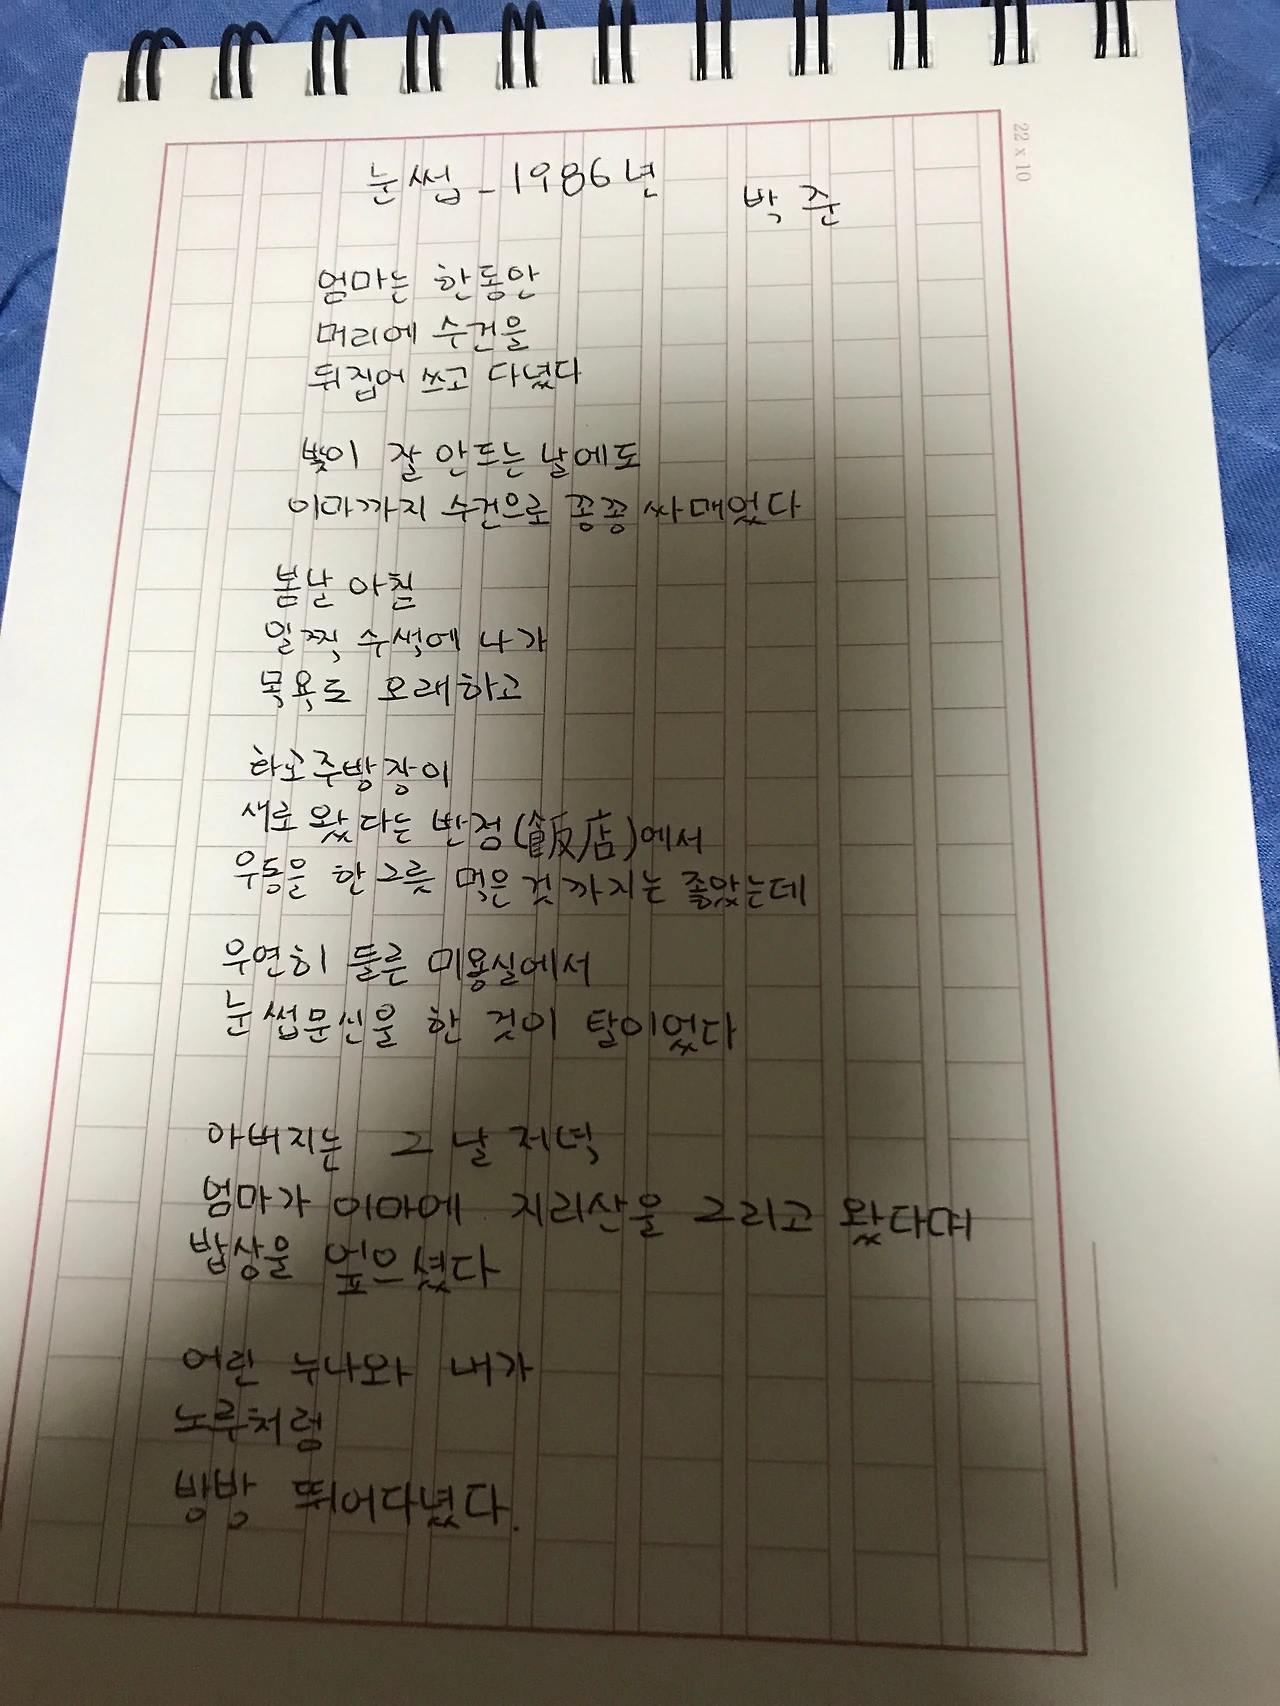 22 x 10
눈썹 - 1986년
박준
엄마는 한동안
머리에 수건을
뒤집어 쓰고 다녔다
빛이 잘 안드는 날에도
이마까지 수건으로 꽁꽁 싸매었다
봄날 아침
일찍 수색에 나가
목욕도 오래하고
화교 주방장이
새로 왔다는 반점(飯店)에서
우동을 한 그릇 먹은 것까지는 좋았는데
우연히 들른 미용실에서
눈썹문신을 한 것이 탈이었다
아버지는 그 날 저녁
엄마가 이마에 지리산을 그리고 왔다며
밥상을 엎으셨다
어린 누나와 내가
노루처럼
방방 뛰어다녔다.